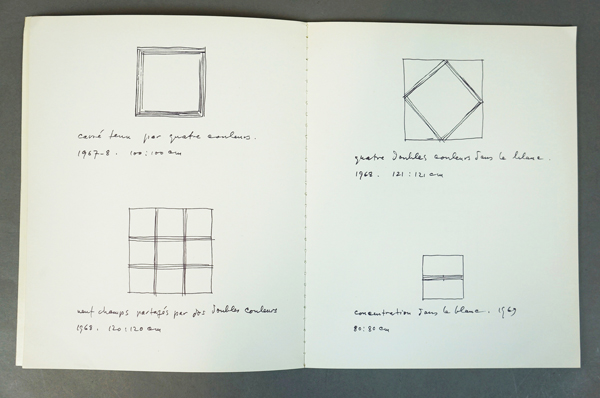 carré tenu par quatre couleurs.
1967-8. 100:100 cm
neuf champs partagés par des doubles couleurs
1968. 120:120 cm
quatre doubles couleurs dans le blanc.
1968. 121:121 cm
concentration dans le blanc. 1969
80:80 cm